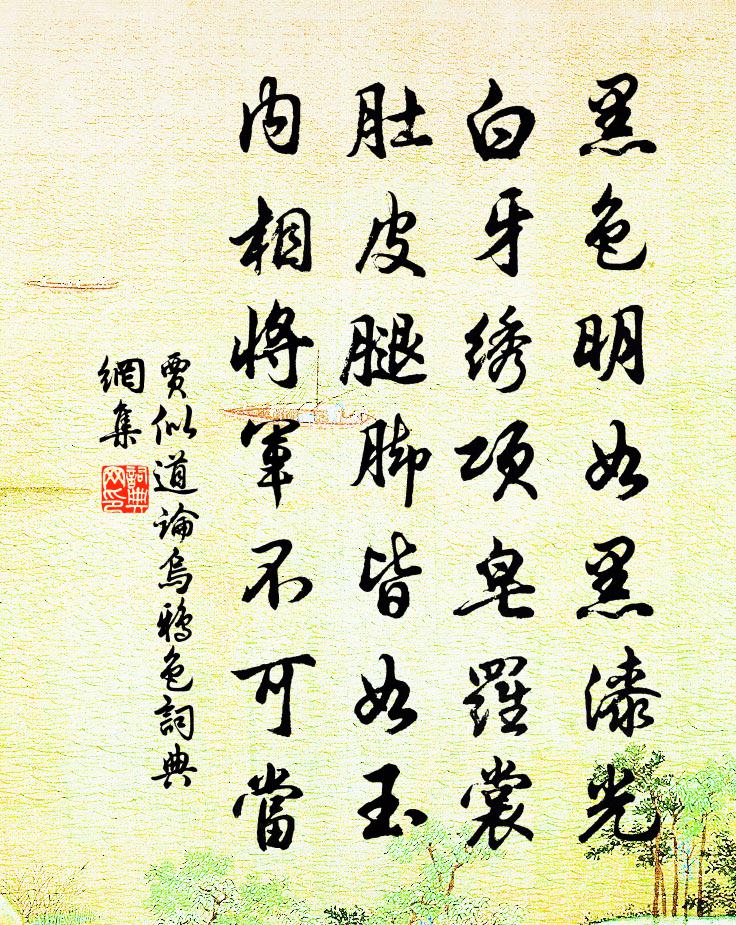 黑色明如黑漆光
白牙绣项皂罗裳
肚皮腿脚皆如玉
内相将军不可当
賈似道論烏鴉色詞典
網集
詞典
网印